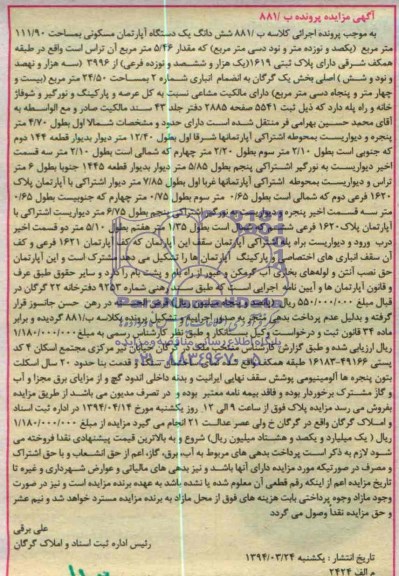 آگهی مزایده پرونده ب /۸۸۱
به موجب پرونده اجرائی کلاسه ب /۸۸۱ شش دانگ یک دستگاه آپارتمان مسکونی بمساحت ۱۱۱/۹۰
متر مربع (یکصد و نوزده متر و نود دسی متر مربع) که مقدار ۵/۴۶ متر مربع آن تراس است واقع در طبقه
همکف شرقی دارای پلاک ثبتی ۱۶۱۹ (یک هزار و ششصد و نوزده فرعی) از ۳۹۹۶ (سه هزار و نهصد
و نود و شش) اصلی بخش یک گرگان به انضمام انباری شماره ۲ بمساحت ۲۴/۵۰ متر مربع (بیست و
چهار متر و پنجاه دسی متر مربع) دارای مالکیت مشاعی نسبت به کل عرصه و پارکینگ و نورگیر و شوفاژ
خانه و راه پله دارد که ذیل ثبت ۵۵۴۱ صفحه ۲۸۸۵ دفتر جلد ۴۳ سند مالکیت صادر و مع الواسطه به
آقای محمد حسین بهرامی فر منتقل شده است دارای حدود و مشخصات شمالا اول بطول ۴/۷۰ متر
پنجره و دیواریست بمحوطه اشتراکی آپارتمانها شرقا اول بطول ۱۲/۴۰ متر دیوار بدیوار قطعه ۱۴۴ دوم
که جنوبی است بطول ۲/۱۰ متر سوم بطول ۲/۲۰ متر چهارم که شمالی است بطول ۲/۱۰ متر سه قسمت
اخیر دیواریست به نورگیر اشتراکی پنجم بطول ۵/۸۵ متر دیوار بدیوار قطعه ۱۴۴۵ جنوبا بطول ۶ متر
تراس و دیواریست بمحوطه اشتراکی آپارتمانها غربا اول بطول ۷/۸۵ متر دیوار اشتراکی با آپارتمان پلاک
۱۶۲۰ فرعی دوم که شمالی است بطول ۰/۶۵ متر سوم بطول ۰/۷۵ متر چهارم که جنوبیست بطول ۰/۶۵
متر سه قسمت اخیر پنجره و دیواریست به نورگیر اشتراکی پنجم بطول ۶/۷۵ متر دیواریست اشتراکی با
آپارتمان پلاک ۱۶۲۰ فرعی است بطول ۱/۳۵ متر هفتم بطول ۵/۱۰ متر دو قسمت اخیر
درب ورود و دیواریست براه پله اشتراکی آپارتمان سقف این آپارتمان که کف آپارتمان ۱۶۲۱ فرعی و کف
آن سقف انباری های اختصاصی و پارکینگ آپارتمان ها را تشکیل می دهد مشترک است و این آپارتمان
حق نصب آنتن و لوله‌های بخاری آب گرمکن و عبور از راه پله و پشت بام را دارد و سایر حقوق طبق عرف
و قانون آپارتمان ها و آیین نامه اجرایی است که طبق سند رهنی شماره ۹۲۵۳ دفترخانه ۲۲ گرگان در
قبال مبلغ ۵۵۰/۰۰۰/۰۰۰ ریال در رهن حسن جانسوز قرار
گرفته و بدلیل عدم پرداخت بدهی منجر به صدور اجرائیه و تشکیل پرونده بکلاسه ب/۸۸۱ گردیده و برابر
ماده ۳۴ قانون ثبت و درخواست وکیل بستانکار و طبق نظر کارشناس رسمی به مبلغ ۱/۱۸۰/۰۰۰/۰۰۰
ریال ارزیابی شده و طبق گزارش کارشناس گرگان مرکزی مجتمع اسکان ۴ کد
پستی ۴۹۱۶۶-۱۶۱۸۳ طبقه همکف واقع شده سنگ و قدمت بنا حدود ۲۰ سال اسکلت
بتون پنجره ها آلومینیومی پوشش سقف نهایی ایرانیت و بدنه داخلی اندود گچ و از مزایای برق مجزا و آب
و گاز مشترک برخوردار بوده و فاقد بیمه نامه معتبر بوده و در تصرف مدیون می باشد. از طریق مزایده
بفروش می رسد مزایده پلاک فوق از ساعت ۹ الی ۱۲ روز یکشنبه مورخ ۱۳۹۴/۰۴/۱۴ در اداره ثبت اسناد
و املاک گرگان واقع در گرگان خ ولی عصر عدالت ۲۱ انجام می گیرد مزایده از مبلغ ۱/۱۸۰/۰۰۰/۰۰۰
ریال ( یک میلیارد و یکصد و هشتاد میلیون ریال) شروع و به بالاترین قیمت پیشنهادی نقدا فروخته می
شود لازم به ذکر است پرداخت بدهی های مربوط به آب، برق، گاز، اعم از حق انشعاب و یا حق اشتراک
و مصرف در صورتیکه مورد مزایده دارای آنها باشد و نیز بدهی های مالیاتی و عوارض شهرداری و غیره تا
تاریخ مزایده اعم از اینکه رقم قطعی آن معلوم شده یا نشده باشد به عهده برنده مزایده است و نیز در صورت
وجود مازاد وجوه پرداختی بابت هزینه های فوق از محل مازاد به برنده مزایده مسترد خواهد شد و نیم عشر
و حق مزایده نقدا وصول می گردد
علی برقی
رئیس اداره ثبت اسناد و املاک گرگان
تاریخ انتشار : یکشنبه ۱۳۹۴/۰۳/۲۴
م الف ۲۴۲۴